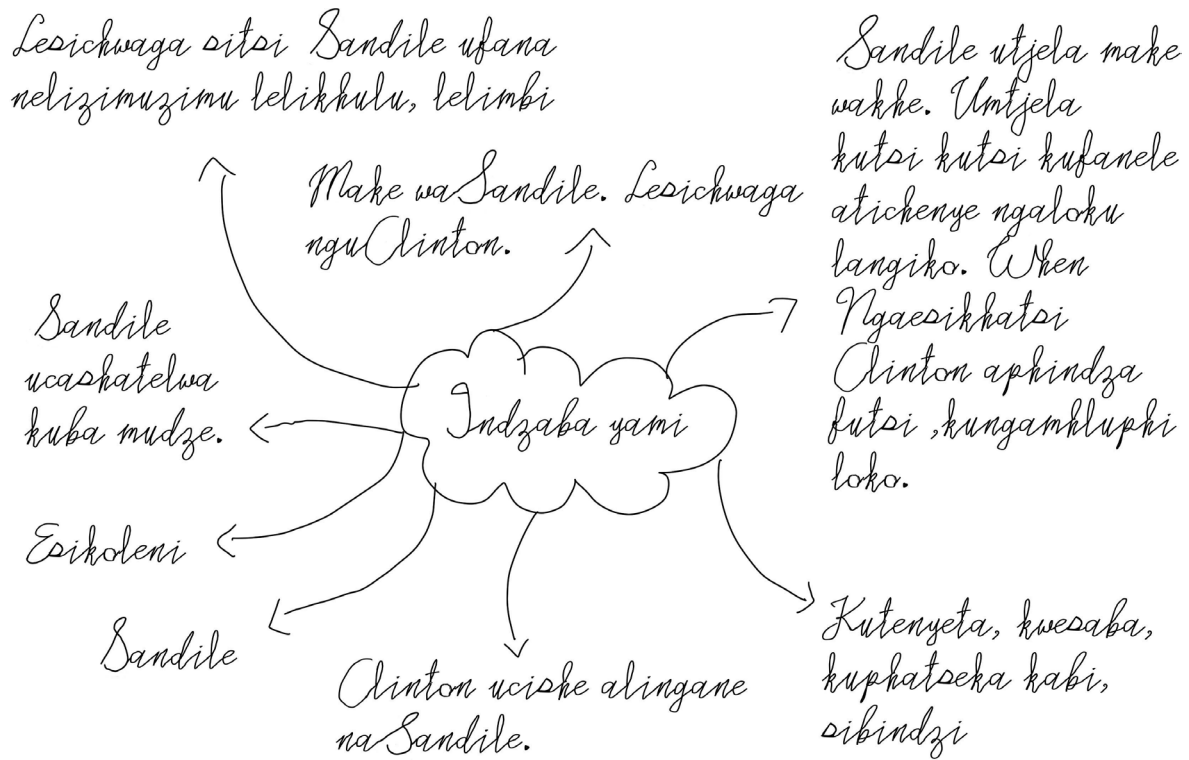 Lesichwaga sitsi Sandile ufana
nelizimuzimu lelikhulu, lelimbi
Make wa Sandile. Lesichwaga
nguClinton.
Sandile utjela make
wakhe. Umtjela
kutsi kutsi kufanele
atichenye ngaloku
langiko. When
Ngaesikhatsi
Clinton aphindza
futsi ,kungamhluphi
loko.
Sandile
ucashatelwa
kuba mudze.
Indzaba yami
Esikoleni
Sandile
Clinton ucishe alingane
na Sandile.
Kutenyeta, kwesaba,
kuphatseka kabi,
sibindzi